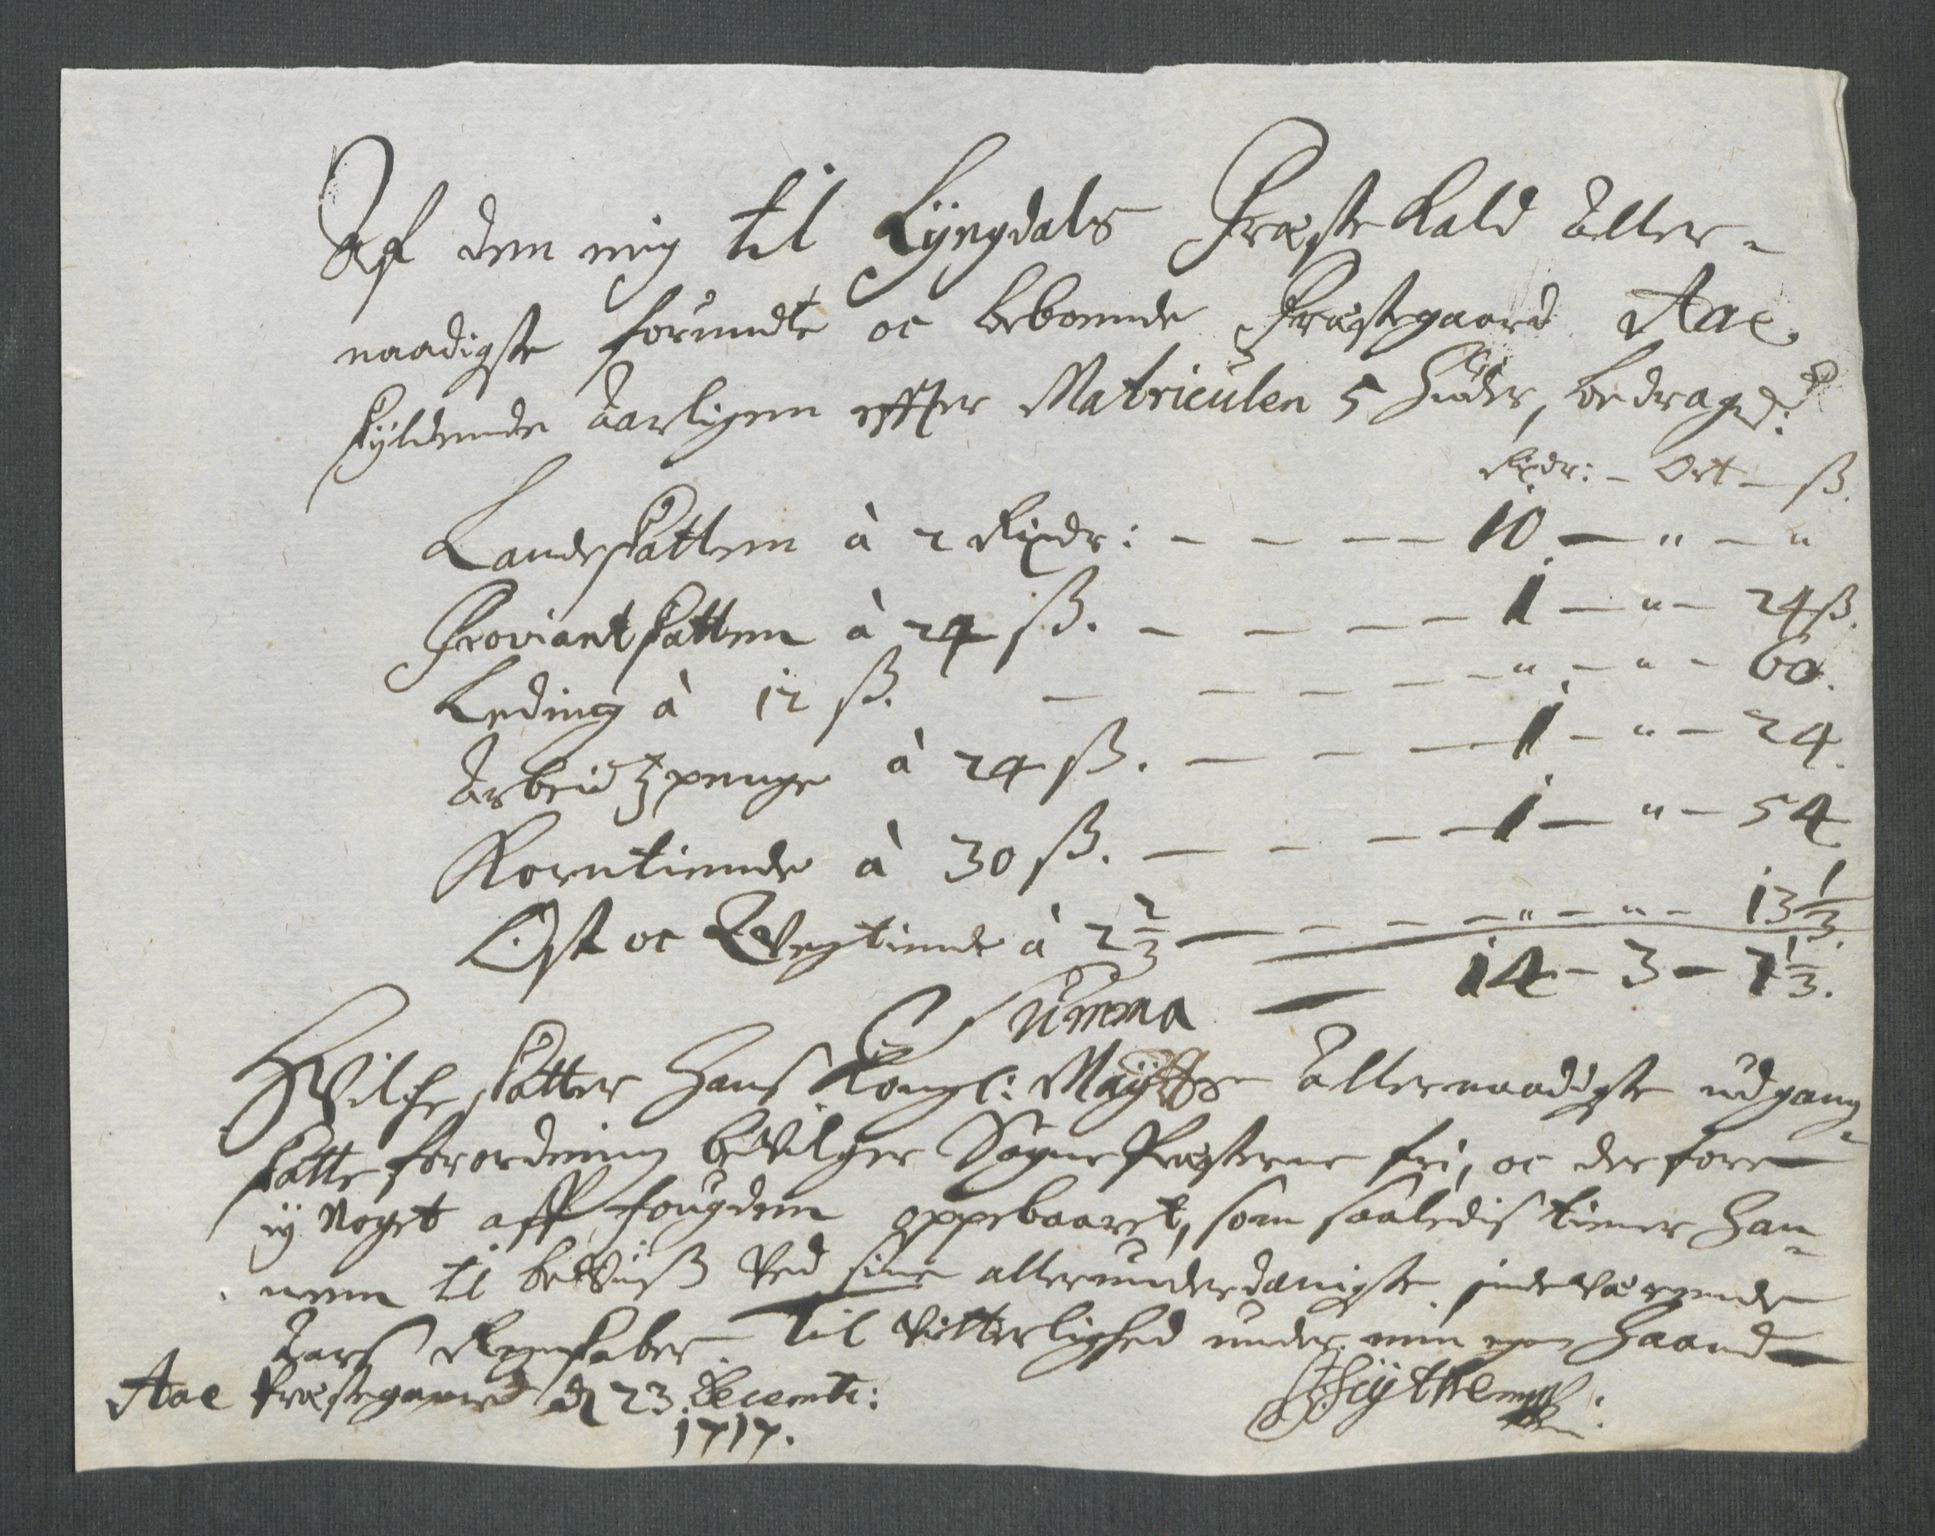 Af den mig til Lyngdals Præste Kald Aller-
naadigste forundte oc beboende Præstegaard Aae.
skyldende Aarligen effter Matriculen 5 Huder, bedraged:
Rixdr: - Ort - ß.
Landskatten à 2 Rixdr: - - - - 10. - " - "
Proviantskatten à 24 ß. - - - - 1 - " - 24 ß.
Leding à 12 ß. - - - - - " - " - 60.
Arbeidzpenge à 24 ß. - - - 1 - " - 24.
Korntiende à 30 ß. - - - - 1 - " - 54.
Ost oc Qvegtiende à 2 2/3 - - - - " - " - 13 1/3.
Summa - 14 - 3 - 7 1/3.
Hvilche skatter Hans Kongl: Mayts Allernaadigste udgang-
skatte forordning bevilger Sogne Præsterne fri, oc derfore
ij Noget aff fougden oppebaaret, som saaledis tiener han-
nem til beviiß ved sine allerunderdanigste indeværende
Aars Regnskaber. Til Vitterlighed under min egen Haand
Aae Præstegaard d 23 Decembr:
1717.